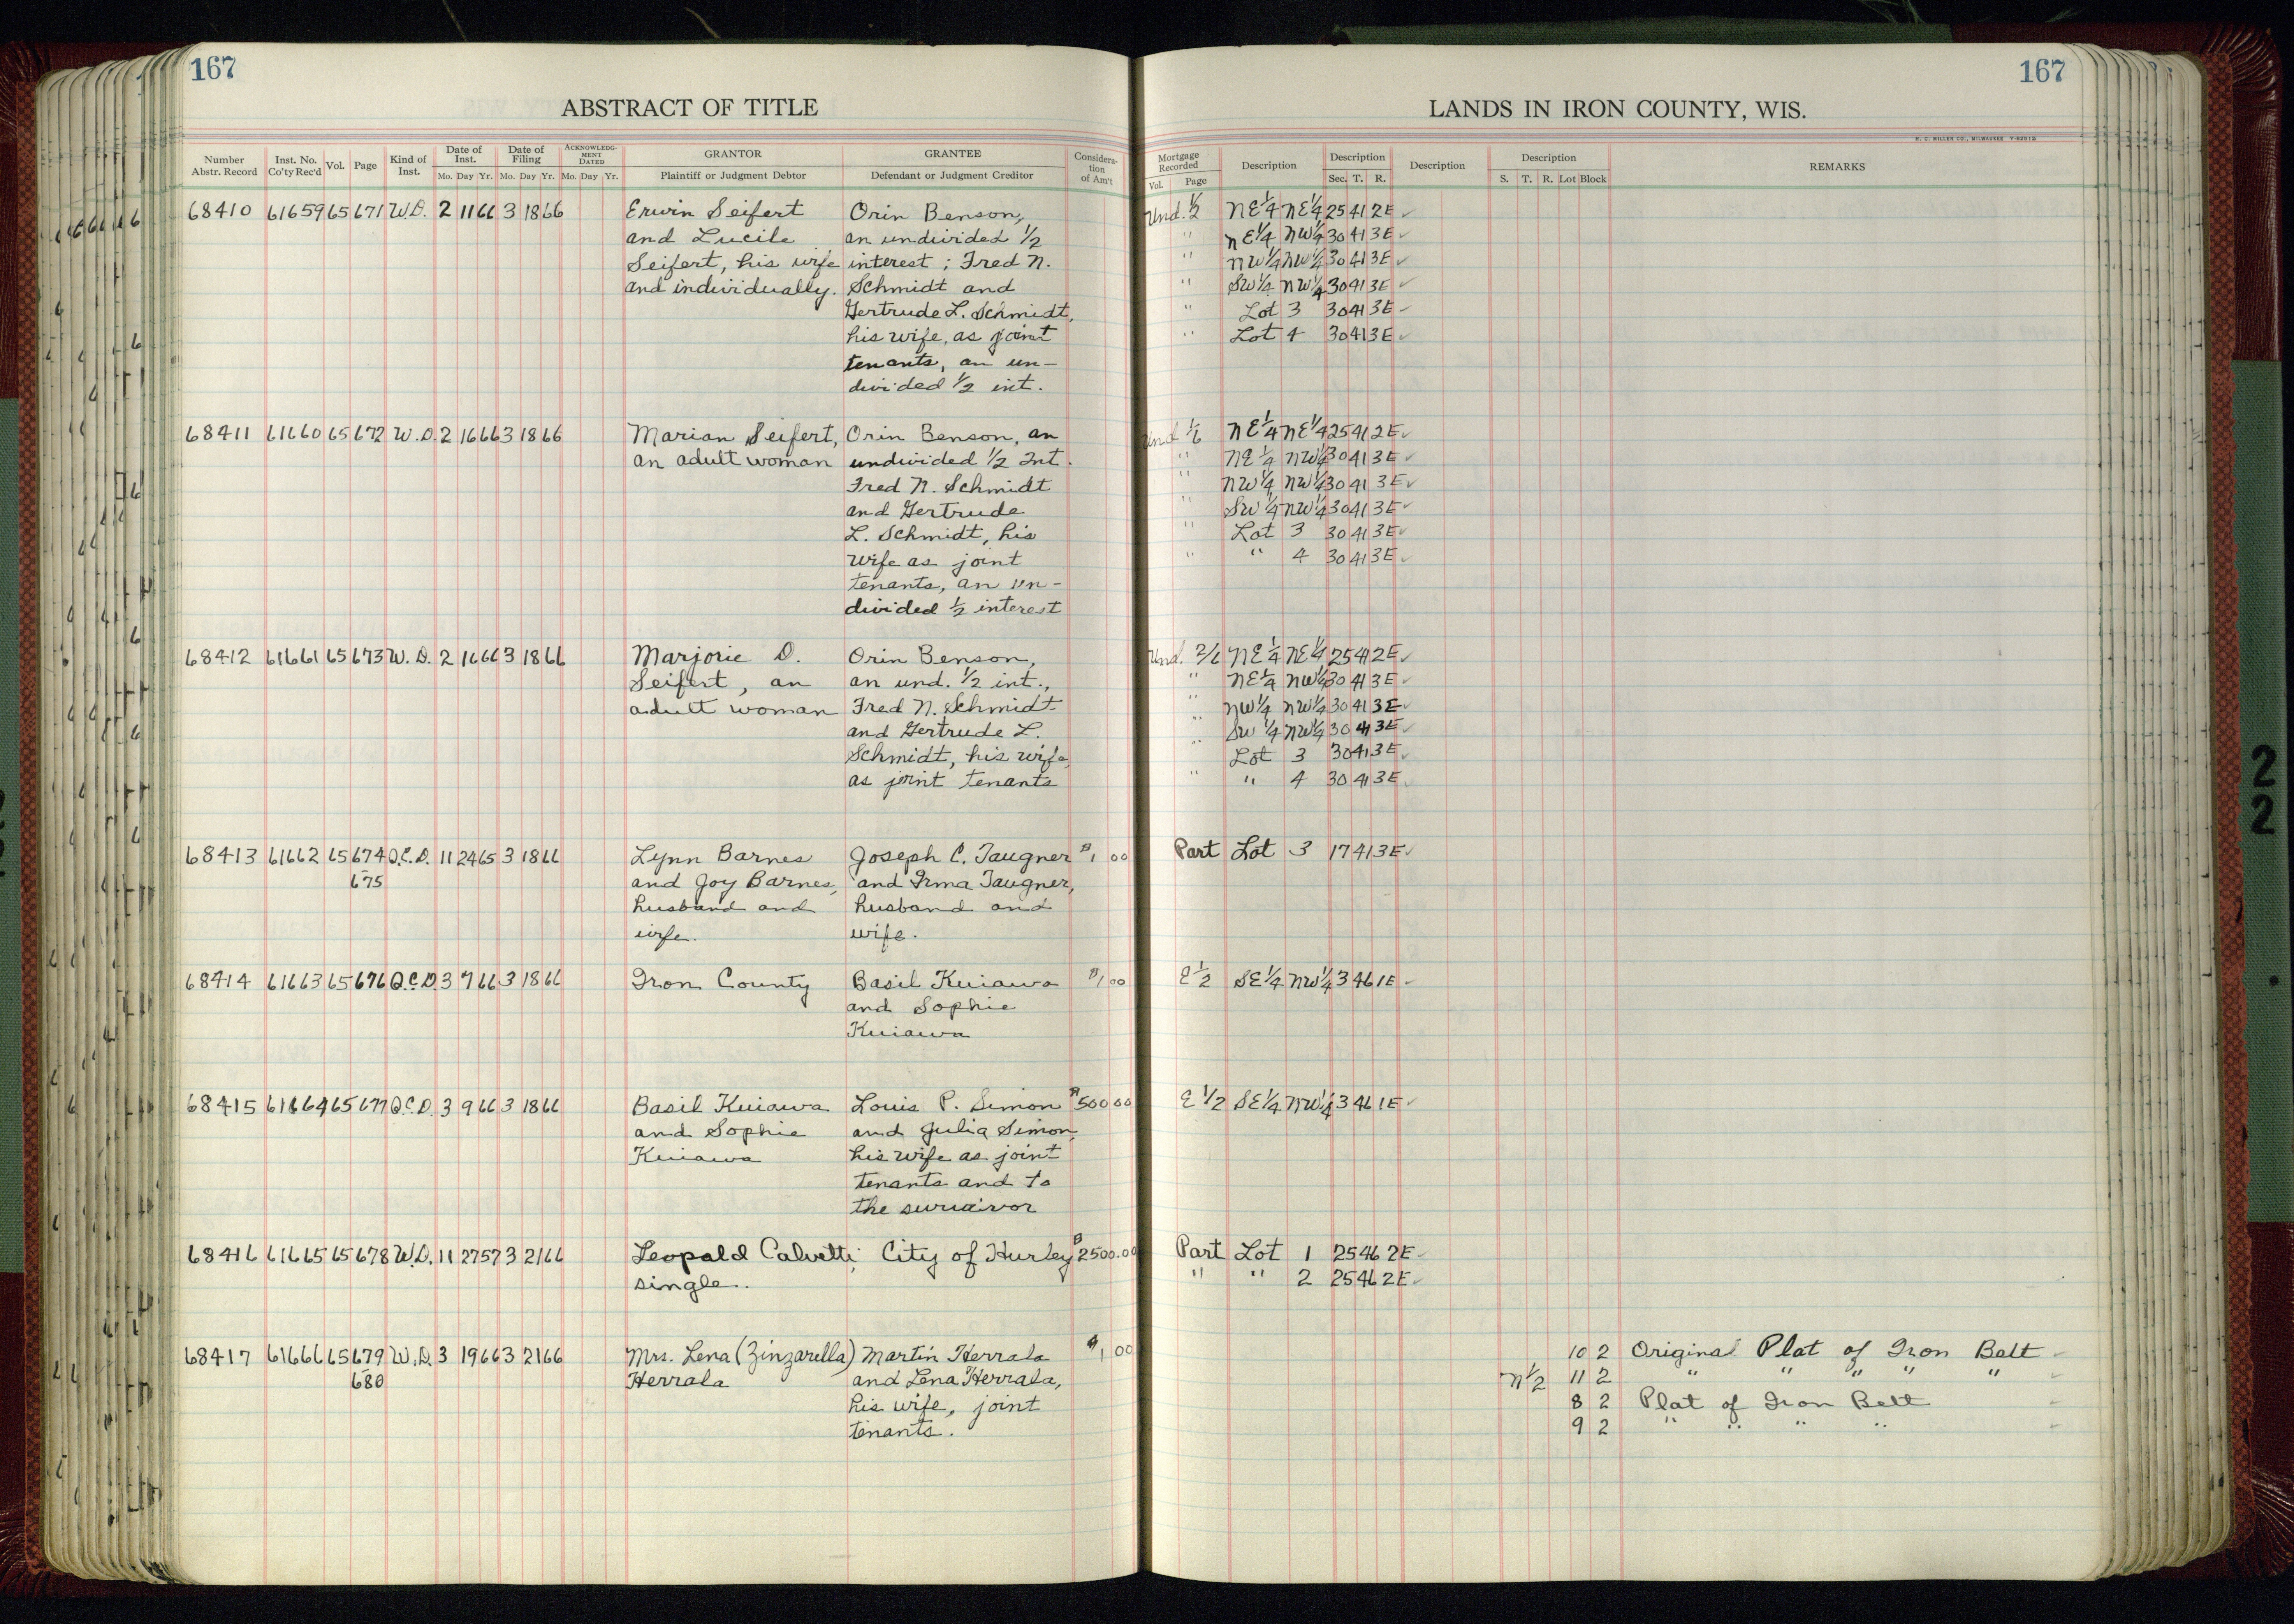 167
ABSTRACT OF TITLE
Number Abstr. Record Inst. No. Co'ty Rec'd Vol. Page Kind of Inst. Date of Inst. Mo. Day Yr. Date of Filing Mo. Day Yr. ACKNOWLEDGMENT DATED Mo. Day Yr. GRANTOR Plaintiff or Judgment Debtor GRANTEE Defendant or Judgment Creditor Consideration of Am't
68410 61659 65 671 W.D. 2 11 66 3 18 66 Erwin Seifert Orin Benson,
and Lucile an undivided 1/2
Seifert, his wife interest; Fred N.
and individually. Schmidt and
Gertrude L. Schmidt,
his wife, as joint
tenants, an un-
divided 1/2 int.
68411 61660 65 672 W.D. 2 16 66 3 18 66 Marian Seifert, Orin Benson, an
an adult woman undivided 1/2 Int.
Fred N. Schmidt
and Gertrude
L. Schmidt, his
wife as joint
tenants, an un-
divided 1/2 interest
68412 61661 65 673 W.D. 2 16 66 3 18 66 Marjorie D. Orin Benson,
Seifert, an an und. 1/2 int.,
adult woman Fred N. Schmidt
and Gertrude L.
Schmidt, his wife,
as joint tenants
68413 61662 65 674 Q.C.D. 11 24 65 3 18 66 Lynn Barnes Joseph C. Taugner $1 00
675 and Joy Barnes, and Irma Taugner,
husband and husband and
wife. wife.
68414 61663 65 676 Q.C.D. 3 7 66 3 18 66 Iron County Basil Kuiawa $1 00
and Sophie
Kuiawa
68415 61664 65 677 Q.C.D. 3 9 66 3 18 66 Basil Kuiawa Louis P. Simon $500 00
and Sophie and Julia Simon,
Kuiawa his wife as joint
tenants and to
the survivor
68416 61665 65 678 W.D. 11 27 57 3 21 66 Leopald Calvetti, City of Hurley $2500.00
single.
68417 61666 65 679 W.D. 3 19 66 3 21 66 Mrs. Lena (Zinzarella) Martin Herrala $1 00
680 Herrala and Lena Herrala,
his wife, joint
tenants.
167
LANDS IN IRON COUNTY, WIS.
H. C. MILLER CO., MILWAUKEE
Mortgage Recorded Vol. Page Description Description Sec. T. R. Description Description S. T. R. Lot Block REMARKS
Und. 1/2 NE 1/4 NE 1/4 25 41 2E ✓
" NE 1/4 NW 1/4 30 41 3E ✓
" NW 1/4 NW 1/4 30 41 3E ✓
" SW 1/4 NW 1/4 30 41 3E ✓
" Lot 3 30 41 3E ✓
" Lot 4 30 41 3E ✓
Und 1/6 NE 1/4 NE 1/4 25 41 2E ✓
" NE 1/4 NW 1/4 30 41 3E ✓
" NW 1/4 NW 1/4 30 41 3E ✓
" SW 1/4 NW 1/4 30 41 3E ✓
" Lot 3 30 41 3E ✓
" " 4 30 41 3E ✓
Und. 2/6 NE 1/4 NE 1/4 25 41 2E ✓
" NE 1/4 NW 1/4 30 41 3E ✓
" NW 1/4 NW 1/4 30 41 3E ✓
" SW 1/4 NW 1/4 30 41 3E ✓
" Lot 3 30 41 3E ✓
" " 4 30 41 3E ✓
Part Lot 3 17 41 3E ✓
E 1/2 SE 1/4 NW 1/4 3 46 1E ✓
E 1/2 SE 1/4 NW 1/4 3 46 1E ✓
Part Lot 1 25 46 2E ✓
" " 2 25 46 2E ✓
10 2 Original Plat of Iron Belt ✓
N 1/2 11 2 " " " " " ✓
8 2 Plat of Iron Belt ✓
9 2 " " " " ✓
2
2